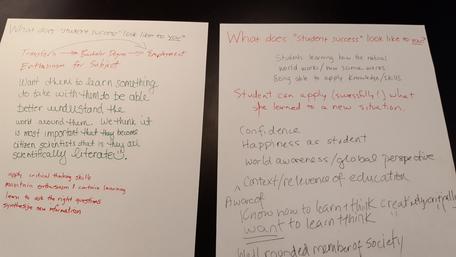 What does "student success" look like to you?
Transfer → Bachelor Degree → Employment
Enthusiasm for Subject
Want them to learn something
to take with them to be able
better understand the
world around them. We think it
is most important that they become
citizen scientists that is they are
scientifically literate
apply critical thinking skills
maintain enthusiasm / continue learning
learn to ask the right questions
synthesize new information
What does "student success" look like to you?
Students learning how the natural
world works / how science works
Being able to apply knowledge/skills
Student can apply (successfully!) what
she learned to a new situation.
Confidence
Happiness as student
World awareness/global perspective
^ Context/relevence of education
Aware of
Know how to learn + think creatively/critically
want to learn + think
Well rounded member of society